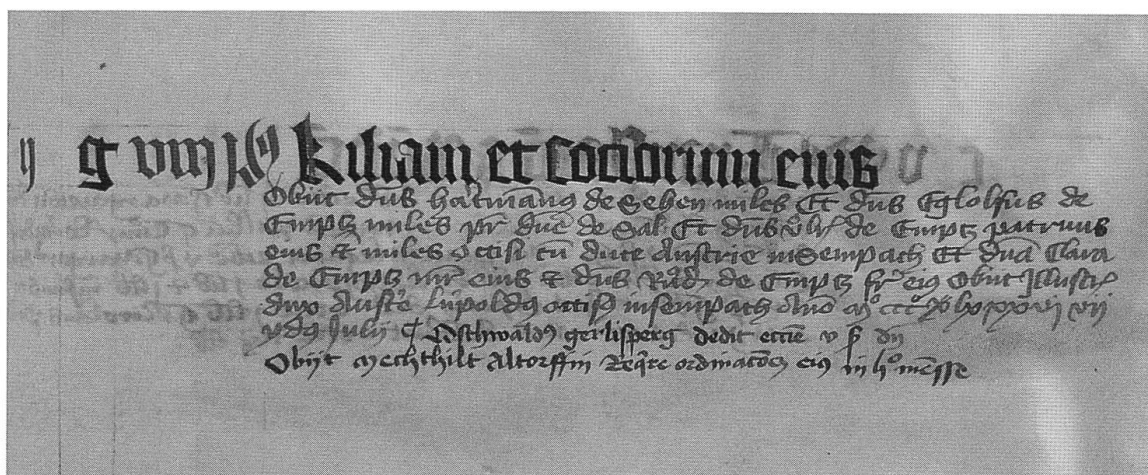 g viii Id Kiliani et sociorum eius
Obiit dns hartmanus de Sehen miles Et dns Eglolfus de
Emptz miles pr dne de Sal Et dns vlr de Emptz patruus
eius et miles occisi cu duce Austrie in Sempach Et dna Clara
de Emptz mr eius & dns Rud de Emptz fr eius Obiit Illustr
dux Austre Lupoldus occisus in sempach Anno mo ccco lxxxvi vii
ydus Julii Oschwaldus gerlisperg dedit eccie v ß dn
Obijt Mechthilt Altorffin Reqre ordinacoem eius in ho mense